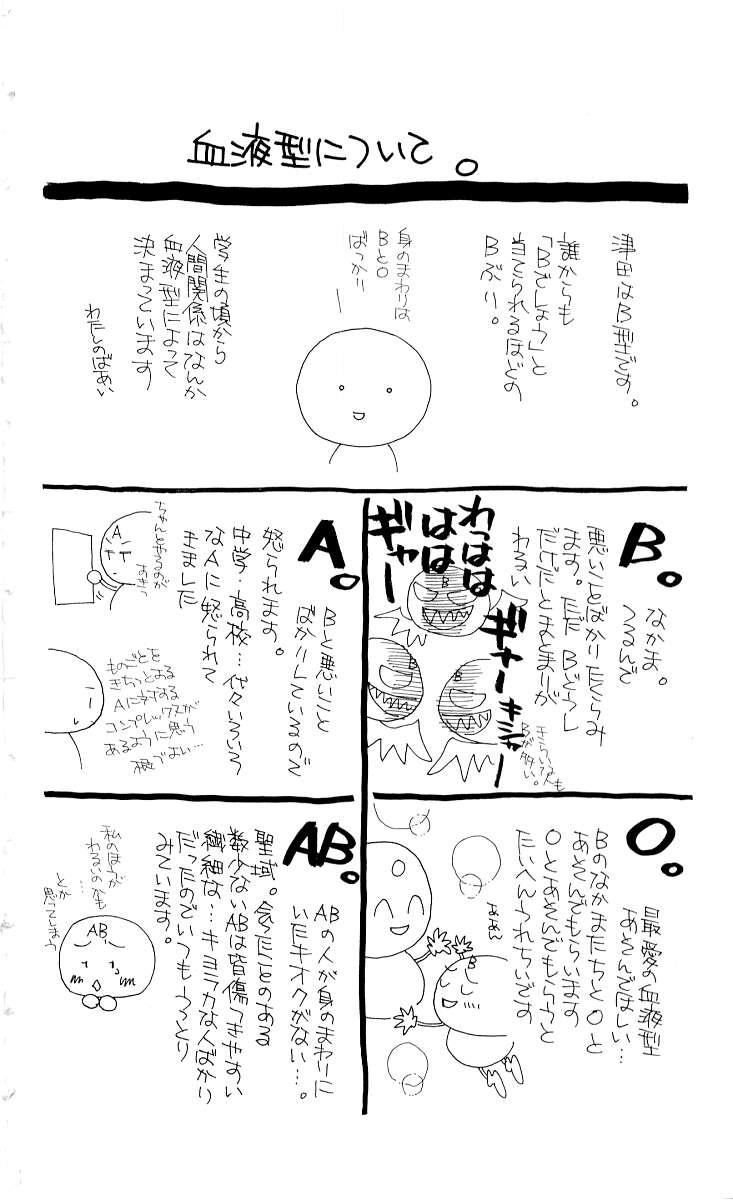 血液型について。
津田はB型です。
誰からも
「Bでしょう」と
当てられるほどの
Bぶり。
身のまわりは
BとO
ばっかり
学生の頃から
人間関係はなんか
血液型によって
決まっています
わたしのばあい
B。
なかま。
つるんで
悪いことばかりたくらみ
ます。ただBどうし
だけだとまとまりが
わるい
わっはは
はは
ギャー
ギャー
キシャー
きらいな人も
Bが多い。
B
B
B
A。
Bと悪いこと
ばかりしているので
怒られます。
中学・高校…代々いろいろ
なAに怒られて
きました
ちゃんとやるのが
あきっ
A
ものごとを
きちっとやる
Aに対する
コンプレックスが
あるように思う
極でよい…
O。
最愛の血液型
あそんでほしい…
Bのなかまたちと〇と
あそんでもらいます
Oとあそんでもらうと
たいへんうれちいです
ああん
O
B
AB。
ABの人が身のまわりに
いたキオクがない…。
聖域。会ったことのある
数少ないABは皆傷つきやすい
繊細な…キヨラカな人ばかり
だったのでいつもうっとり
みています。
私のほうが
わるいのかも
…
とか
思ってしまう
AB